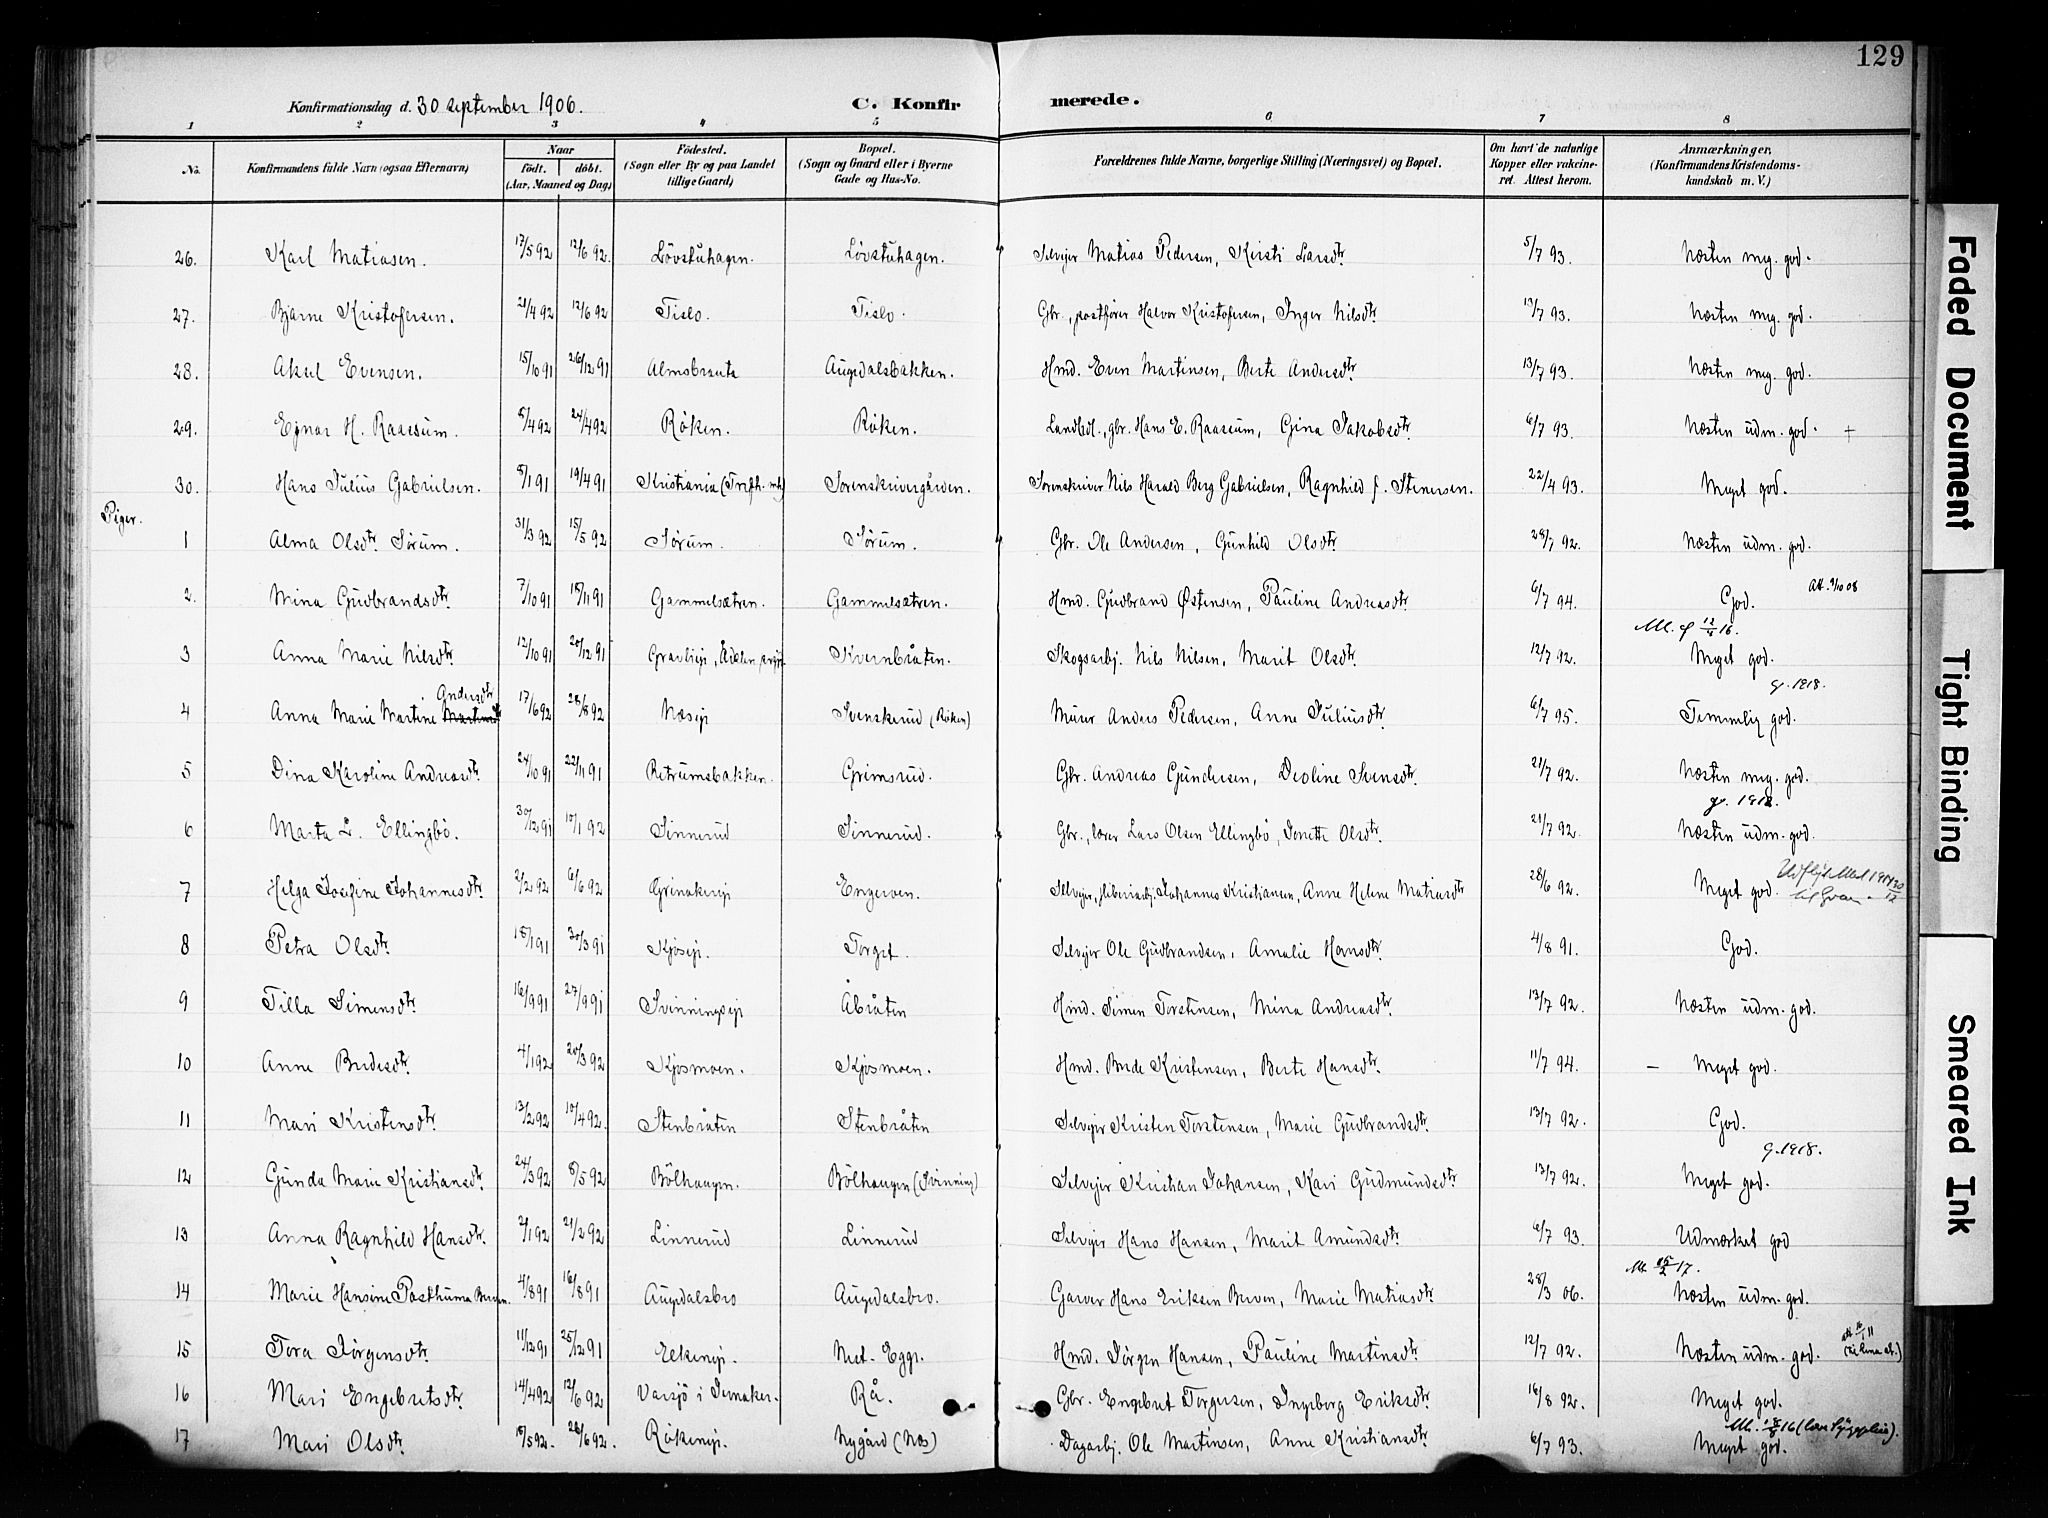 129
Konfirmationsdag d. 30 september 1906. C. Konfir merede.
1 2 3 4 5 6 7 8
No. Konfirmandens fulde Navn (ogsaa Efternavn) Naar født. døbt. (Aar, Maaned og Dag) Födested. (Sogn eller By og paa Landet tillige Gaard) Bopæl. (Sogn og Gaard eller i Byerne Gade og Hus-No. Forældrenes fulde Navne, borgerlige Stilling (Næringsvei) og Bopæl. Om havt de naturlige Kopper eller vakcineret. Attest herom. Anmærkninger, (Konfirmandens Kristendomskundskab m. V.)
26. Karl Matiasen. 17/5 92 12/6 92. Lövstuhagen. Lövstuhagen. Selvejer Matias Pedersen, Kirsti Larsdtr. 5/7 93. Næsten meg. god.
27. Bjarne Kristofersen. 21/4 92 12/6 92 Tislo. Tislo. Gbr., postfører Halvor Kristofersen, Inger Nilsdtr. 13/7 93. Næsten meg. god.
28. Aksel Evensen. 15/10 91 26/12 91 Almsbrauta Augedalsbakken. Hmd. Even Martinsen, Berte Andersdtr. 13/7 93. Næsten meg. god.
29. Ejnar H. Raassum. 8/4 92 24/4 92 Röken. Röken. Landhdl., gbr. Hans E. Raassum, Gina Jakobsdtr. 6/7 93. Næsten udm. god. +
30. Hans Julius Gabrielsen. 8/1 91 19/4 91 Kristiania Sorenskrivergården. Sorenskriver Nils Harald Berg Gabrielsen, Ragnhild f. Stenersen. 22/4 93. Meget god.
Piger.
1 Alma Olsdtr. Sørum. 31/3 92 15/5 92 Sørum. Sørum. Gbr. Ole Andersen, Gunhild Olsdtr. 28/7 92. Næsten udm. god.
2. Mina Gudbrandsdtr. 7/10 91 15/11 91 Gammelsætren. Gammelsætren. Hmd. Gudbrand Østensen, Pauline Andreasdtr. 6/7 94. God. Att. 9/10 08
3 Anna Marie Nilsdtr. 12/10 91 20/12 91 Kvernbråten. Skogsarbj. Nils Nilsen, Marit Olsdtr. 12/7 92. Meget god.
4 Anna Marie Martine Andersdtr 17/6 92 28/8 92 Næsejr Svenskerud (Röken) Murer Anders Pedersen, Anne Juliusdtr. 6/7 95. Temmelig god. g. 1918.
5 Dina Karoline Andreasdtr. 24/10 91 22/11 91 Retrumsbakken. Grimsrud. Gbr. Andreas Gundersen, Deoline Svensdtr. 21/7 92. Næsten meg. god.
6 Marta L. Ellingbö. 30/12 91 10/1 92 Sinnerud Sinnerud. Gbr., lærer Lars Olsen Ellingbö, Jonette Olsdtr. 21/7 92. Næsten udm. god. gr. 1912.
7 Helga Josefine Johannesdtr 2/2 92 6/6 92 Grinakerejr Engerven. Selvejer, sliberiarbj. Johannes Kristiansen, Anne Helene Matiasdtr 28/6 92. Meget god.
8 Petra Olsdtr. 18/1 91 30/3 91 Kjosejr. Torget. Selvejer Ole Gudbrandsen, Amalie Hansdtr. 4/8 91. God.
9 Tilla Simensdtr. 16/9 91 27/9 91 Svinningsejr Åbråten Hmd. Simen Torstensen, Mina Andreasdtr. 13/7 92. Næsten udm. god.
10 Anne Bredesdtr. 4/1 92 20/3 92 Kjosmoen. Kjosmoen. Hmd. Brede Kristensen, Berte Hansdtr. 11/7 94. – Meget god.
11 Mari Kristensdtr. 13/2 92 10/4 92. Stenbråten Stenbråten Selvejer Kristen Torstensen, Marie Gudbrandsdtr. 13/7 92. God.
12 Gunda Marie Kristiansdtr. 24/3 92 8/5 92 Bölhaugen. Bölhaugen (Svinning) Selvejer Kristian Johansen, Kari Gudmundsdtr. 13/7 92. Meget god. g. 1918.
13 Anna Ragnhild Hansdtr. 2/1 92 21/2 92 Linnerud Linnerud Selvejer Hans Hansen, Marit Amundsdtr. 6/7 93. Udmærket god
14 Marie Hansine Posthuma Berven. 4/8 91 16/8 91 Augedalsbro Augedalsbro. Garver Hans Eriksen Berven, Marie Matiasdtr. 28/3 06. Næsten udm. god.
15 Tora Jörgensdtr. 11/12 91 25/12 91 Elkenejr. Met. Egge. Hmd. Jörgen Hansen, Pauline Martinsdtr. 12/7 92. Næsten udm. god.
16 Mari Engebretsdtr. 14/4 92 12/6 92 Vassjö i Jevnaker. Rå. Gbr. Engebret Torgersen, Ingeborg Eriksdtr. 16/8 92. Meget god.
17 Mari Olsdtr. 18/5 92. 26/6 92. Rökenejr. Nygård (Næs) Dagarbj. Ole Martinsen, Anne Kristiansdtr. 6/7 93. Meget god.
Faded Document
Tight Binding
Smeared Ink